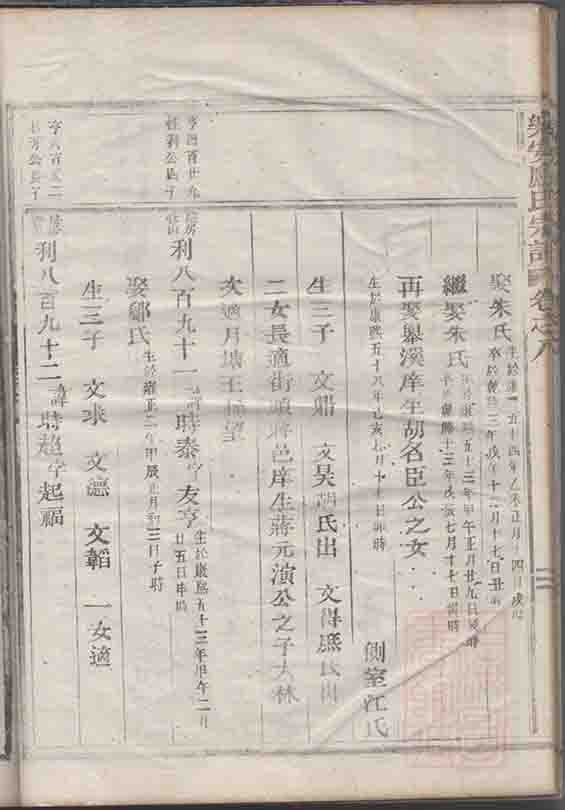 氏宗譜 卷之八
娶朱氏 生於康 五十四年乙未正月十四日戌時
卒於乾隆三年戊午十二月十七日丑時
繼娶朱氏 生於康熙五十三年甲午正月廿九日 時
卒於乾隆十三年戊辰七月十七日 時
再娶舉溪庠生胡名臣公之女
生於康熙五十八年己亥七月十 日卯時
側室江氏
生三子 文鼎 文昊胡氏出 文得庶氏出
二女長適街頭蔣邑庠生蔣元演公之子大林
次適月塘王 望
亨四百廿九
性利公長子
利八百九十一 諱時泰字友亨 生於康熙五十三年甲午二月
廿五日 時
娶鄭氏 生於雍正二年甲辰正月初三日子時
生三子 文求 文德 文韜 一女適
亨六百五二
公長子
利八百九十二 諱時超字起福